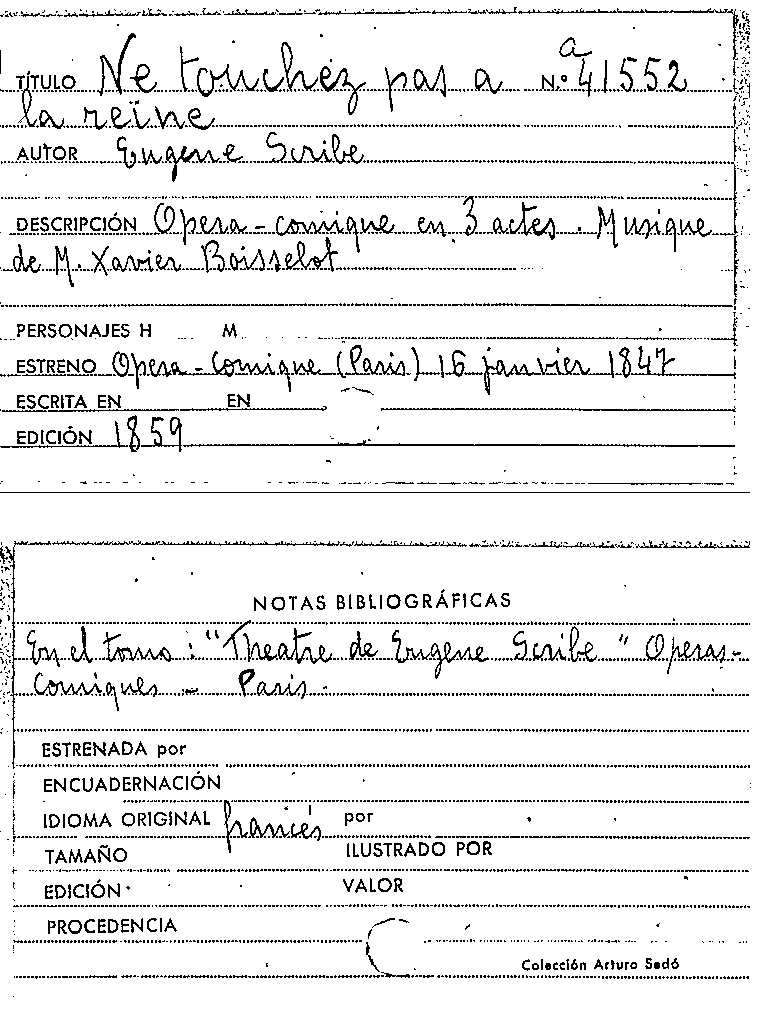 a
TÍTULO Ne touchez pas a N.º 41552
la reine
AUTOR Eugene Scribe
DESCRIPCIÓN Opera-comique en 3 actes. Musique
de M. Xavier Boisselot
PERSONAJES H M
ESTRENO Opera-Comique (Paris) 16 janvier 1847
ESCRITA EN EN
EDICIÓN 1859
NOTAS BIBLIOGRÁFICAS
En el tomo: "Theatre de Eugene Scribe" Operas-
Comiques - Paris.
ESTRENADA por
ENCUADERNACIÓN
IDIOMA ORIGINAL francés por
TAMAÑO ILUSTRADO POR
EDICIÓN VALOR
PROCEDENCIA
Colección Arturo Sedó